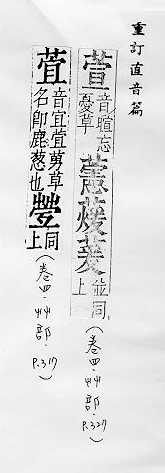 重訂直音篇
萱 音暄忘憂草 藼蕿蘐 並同上
(巻四‧艸部‧P.327)
萓 音宜萓男草名即鹿葱也 同上
(巻四‧艸部‧P.317)